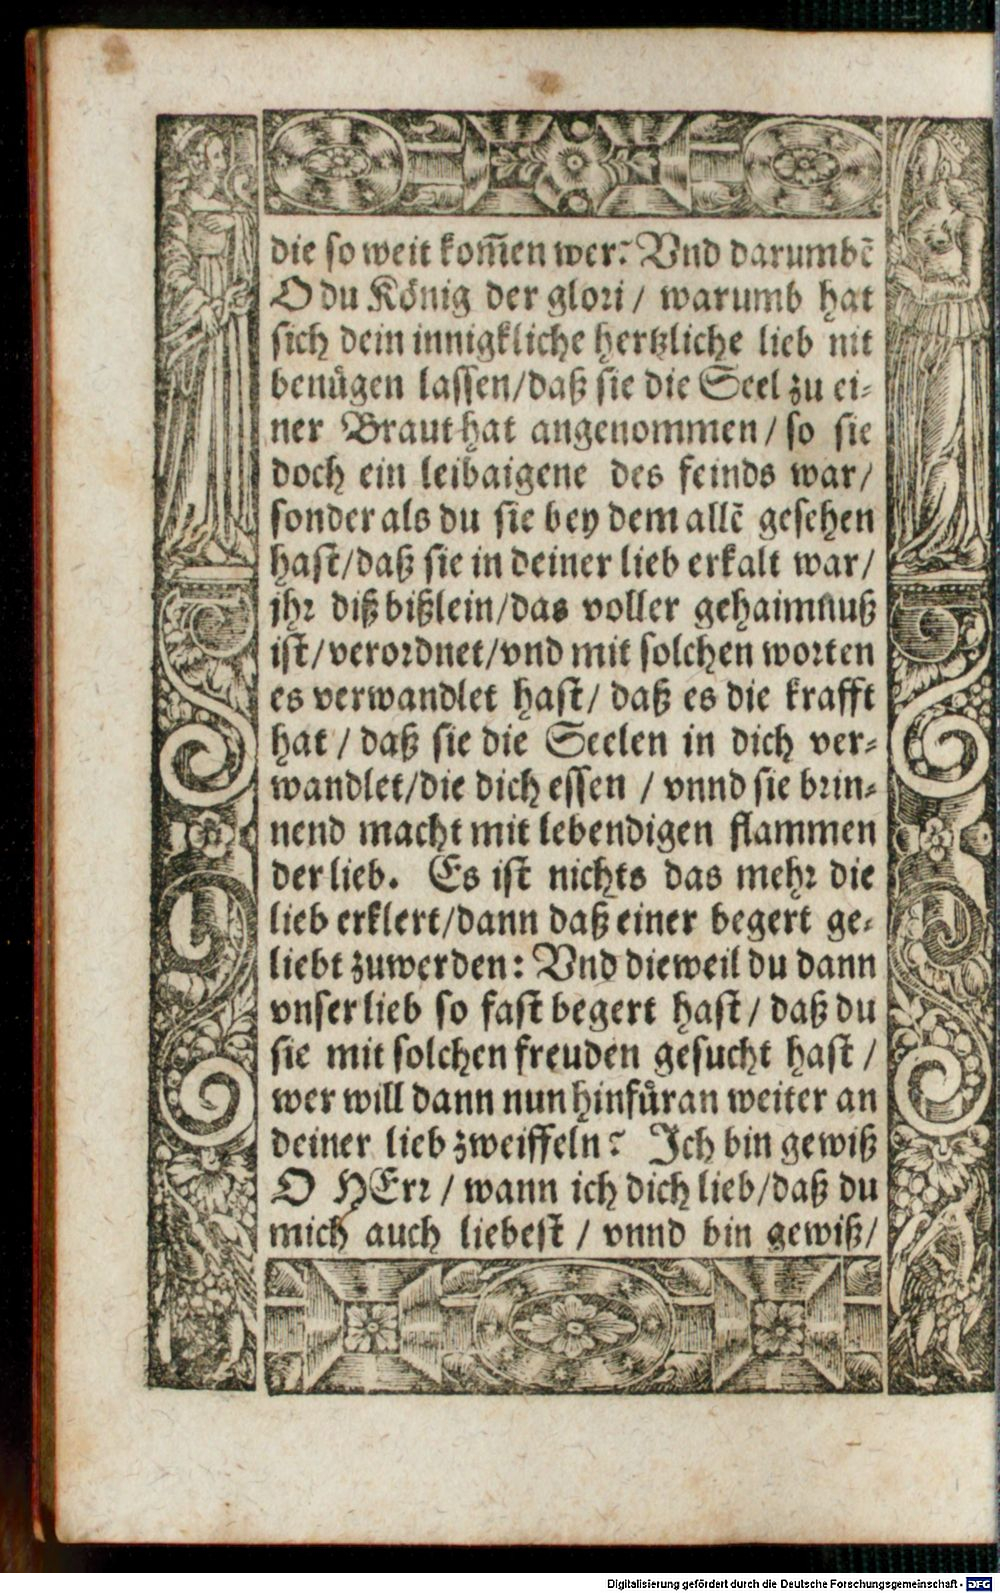 die so weit kom̄en wer? Vnd darumbē
O du König der glori / warumb hat
sich dein innigkliche hertzliche lieb nit
benuͤgen lassen/daß sie die Seel zu ei-
ner Braut hat angenommen / so sie
doch ein leibaigene des feinds war/
sonder als du sie bey dem allē gesehen
hast/daß sie in deiner lieb erkalt war/
jhr diß bißlein/das voller gehaimnuß
ist/verordnet/vnd mit solchen worten
es verwandlet hast/ daß es die krafft
hat / daß sie die Seelen in dich ver-
wandlet/die dich essen / vnnd sie brin-
nend macht mit lebendigen flammen
der lieb. Es ist nichts das mehr die
lieb erklert/dann daß einer begert ge-
liebt zuwerden: Vnd dieweil du dann
vnser lieb so fast begert hast/ daß du
sie mit solchen freuden gesucht hast /
wer will dann nun hinfuͤran weiter an
deiner lieb zweiffeln? Ich bin gewiß
O HErr / wann ich dich lieb/daß du
mich auch liebest / vnnd bin gewiß/
Digitalisierung gefördert durch die Deutsche Forschungsgemeinschaft - DFG